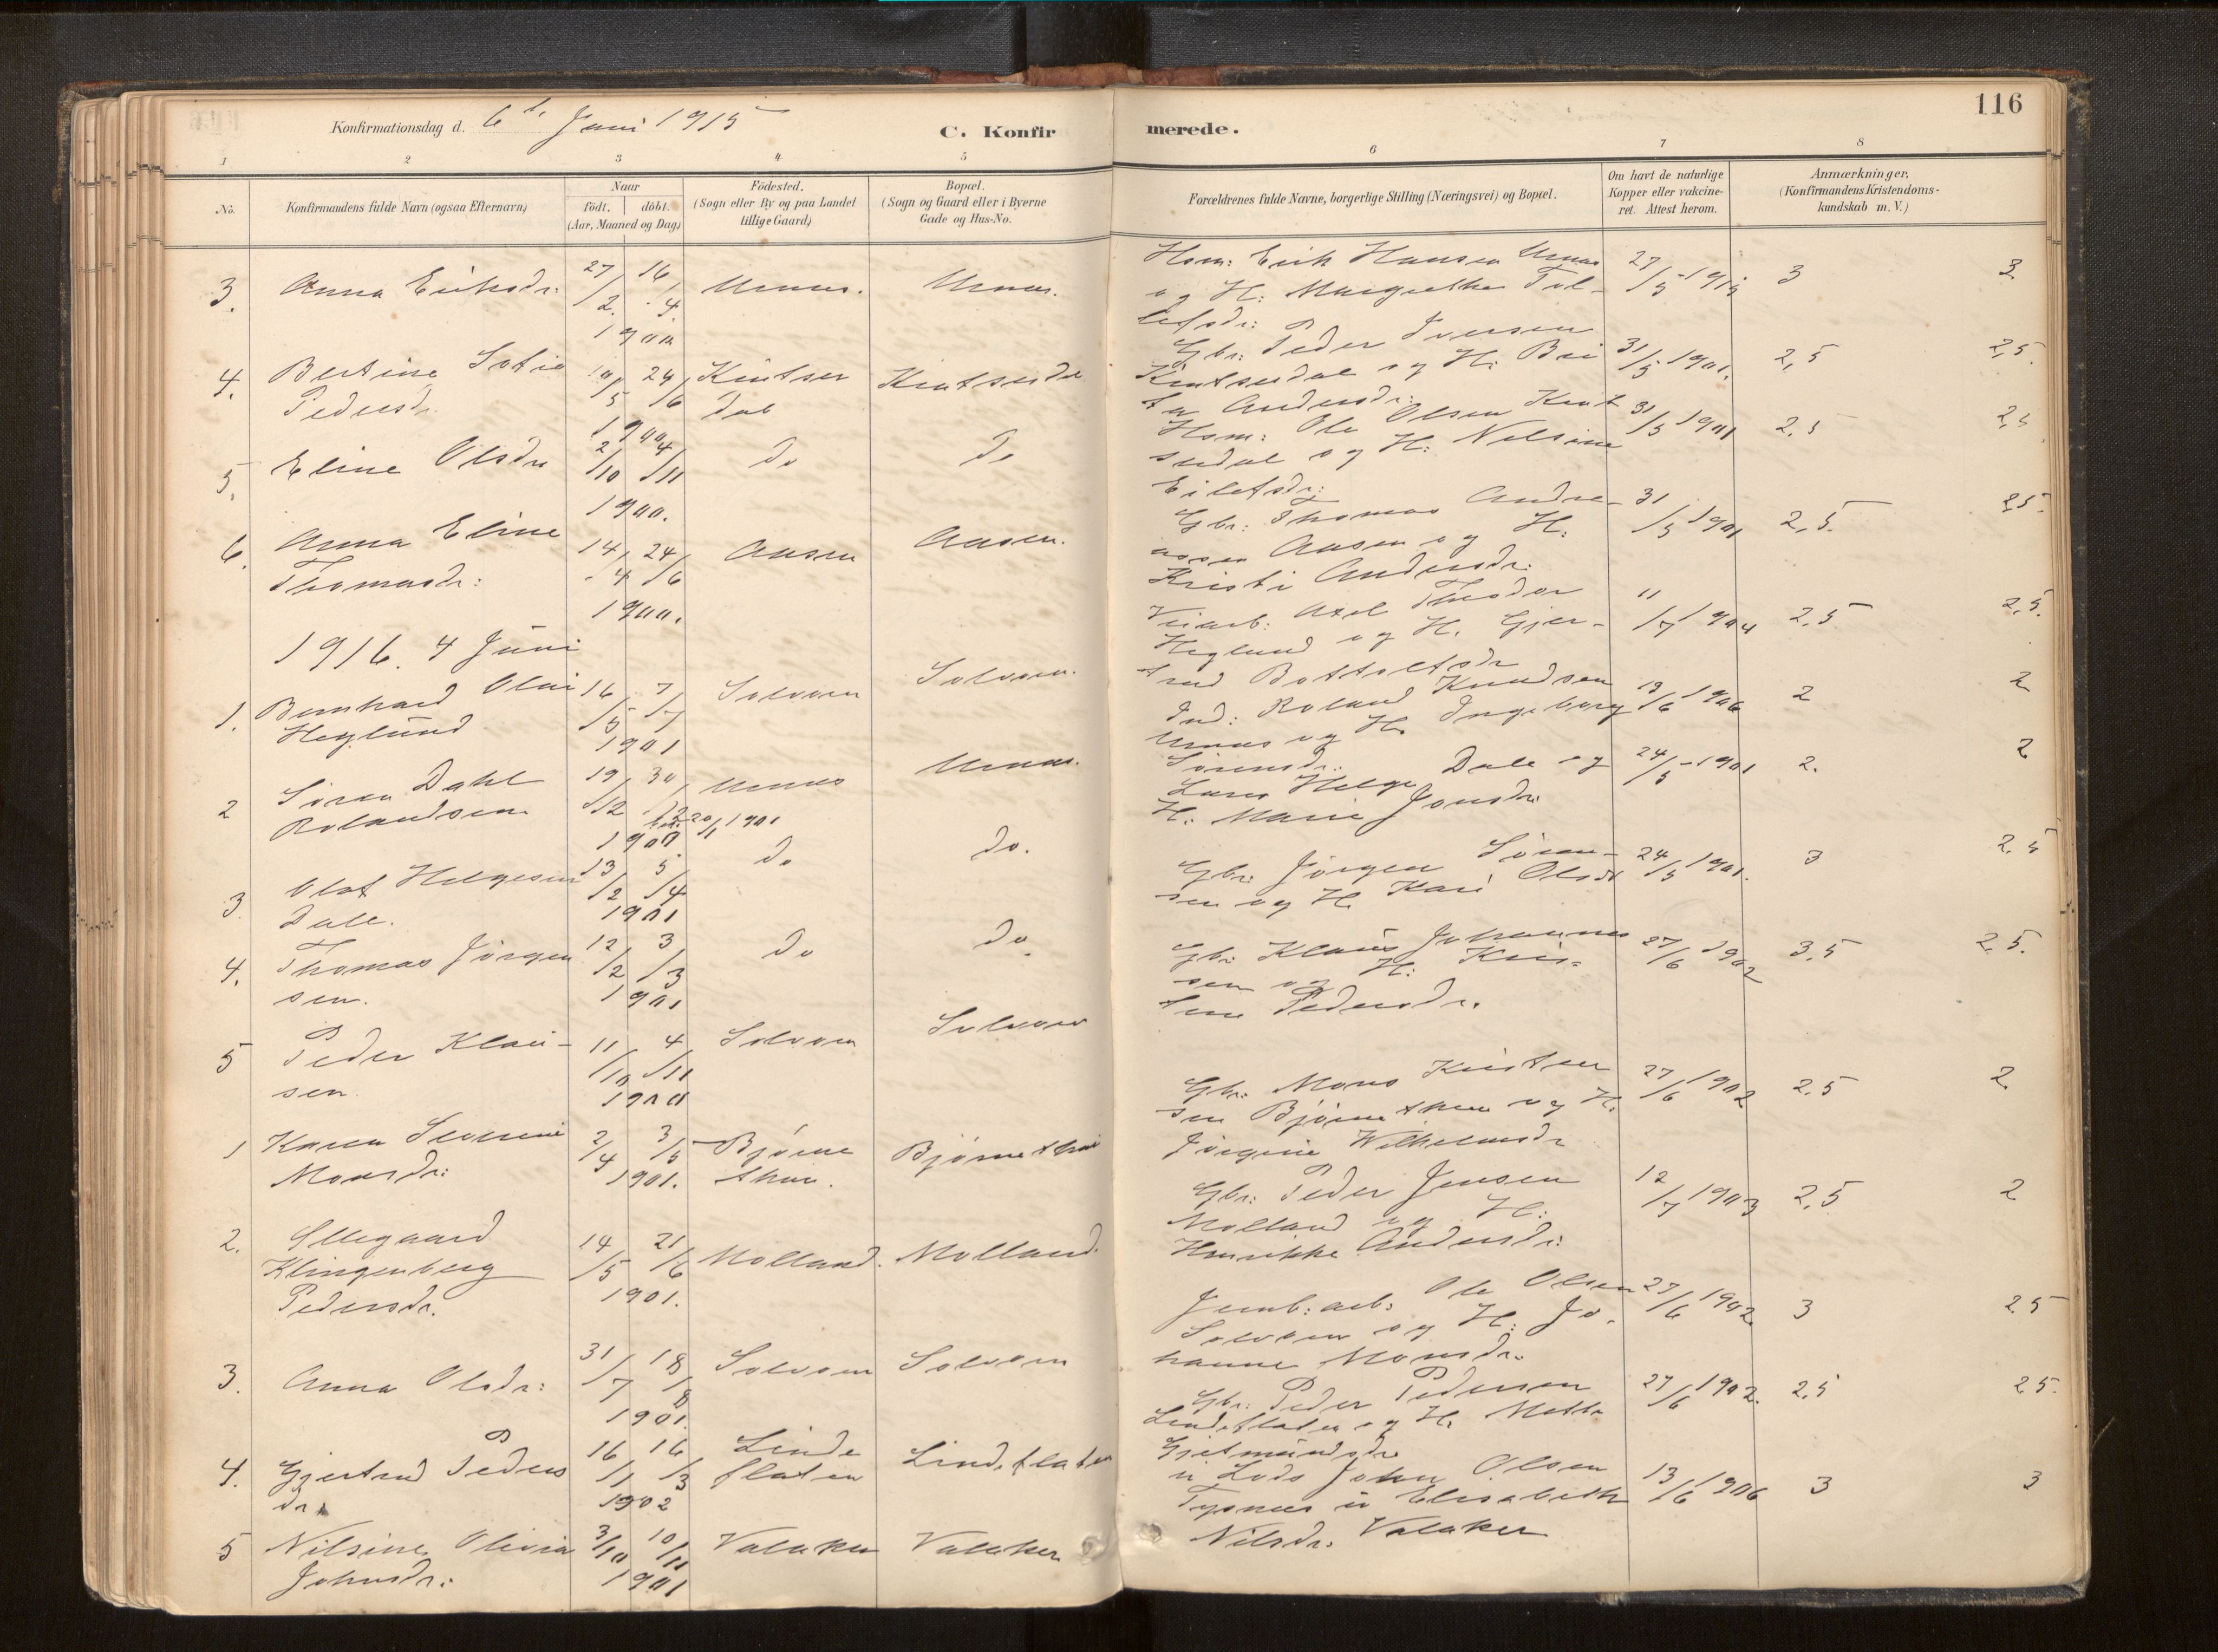 116
Konfirmationsdag d. 6te Juni 1915
C. Konfirmerede.
1 2 3 4 5 6 7 8
No.
Konfirmandens fulde Navn (ogsaa Efternavn)
Naar
födt. döbt.
(Aar, Maaned og Dag)
Födested.
(Sogn eller By og paa Landet
tillige Gaard)
Bopæl.
(Sogn og Gaard eller i Byerne
Gade og Hus-No.
Forældrenes fulde Navne, borgerlige Stilling (Næringsvei) og Bopæl.
Om havt de naturlige
Kopper eller vakcine-
ret. Attest herom.
Anmærkninger,
(Konfirmandens Kristendoms-
kundskab m. V.)
3. Anna Eriksdr: 27/2 16/4 1900 Urnes. Urnes.
Hsm: Erik Hansen Urnes
og H: Margrethe Tol-
lefsdr: 27/5 - 1915 3 3
4. Bertine Sofie
Pedersd. 10/5 24/6 1900 Kintser
dal Kintserdal
Gbr: Peder Iversen
Kintserdal og H: Bri
ta Andersdr: 31/5 1901. 2,5 2,5.
5. Eline Olsdr 2/10 4/11 1900. Do Do
Hsm: Ole Olsen Kint
serdal og H: Nilsine
Eilefsdr: 31/5 1901 2.5 2,5
6. Anna Eline
Thomasdr: 14/4 24/6 1900. Aasen Aasen.
Gbr: Thomas Andre-
assen Aasen og H:
Kristi Andersdr: 31/5 1901 2,5. 2,5.
1916. 4 Juni
1. Bernhard Olai
Heglund 16/5 7/7 1901 Solvorn Solvorn.
Veiarb: Axel Theodor
Heglund og H. Gjer-
trud Bottolfsdr 11/7 1904 2,5 2,5.
2 Søren Dahl
Rolandsen 19/12 30/12 1900 20/1 1901 Urnes Urnes.
Ind: Roland Knudsen
Urnes og H. Ingeborg
Sørensdr: 13/6 1906 2 2
3 Olaf Helgesen
Dale. 13/2 5/4 1901 do do.
Lars Helge Dale og
H: Marie Jonsdr: 24/5 - 1901 2. 2
4. Thomas Jørgen
sen. 12/2 3/3 1901 do do
Gbr: Jørgen Søren-
sen og H. Kari Olsdt 24/5 1901. 3 2.5
5 Peder Klau-
sen. 11/10 4/11 1900 Solvorn Solvorn
Gbr: Klaus Johannes
sen og H: Kris-
tine Pedersdr. 27/6 1902 3,5 2.5.
1 Karen Severine
Monsdr: 2/4 3/5 1901. Bjørne
thun. Bjørnethun
Gbr. Mons Kristen
sen Bjørnethun og H.
Jørgine Wilhelmsdr 27/6 1902 2,5 2
2. Ellegaard
Klingenberg
Pedersdr. 14/5 21/6 1901. Molland. Molland.
Gbr: Peder Jensen
Molland og H:
Henrikke Andersdr: 12/7 1903 2,5 2
3. Anna Olsdr: 31/7 18/8 1901. Solvorn Solvorn
Jernb: arb: Ole Olsen
Solvorn og H: Jo-
hanne Monsdr. 27/6 1902 3 2.5
4. Gjertrud Peders
dr. 16/1 16/3 1902 Linde
flaten Lindeflaten
Gbr: Peder Pedersen
Lindeflaten og H. Mette
Gjetmundsdr 27/6 1902. 2,5 2.5.
5 Nilsine Olivia
Johnsdr: 3/10 10/11 1901 Valaker Valaker
u Lods John Olsen
Tysnes u Elisabeth
Nilsdr. Valaker 13/6 1906 3 3